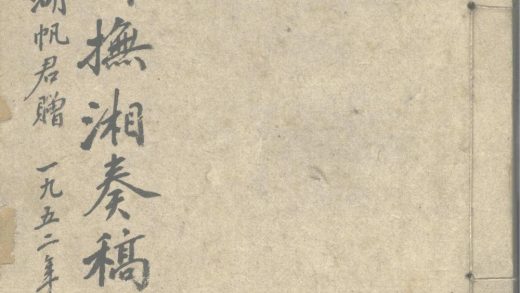 撫湘奏稿
湖帆君贈 一九五二年